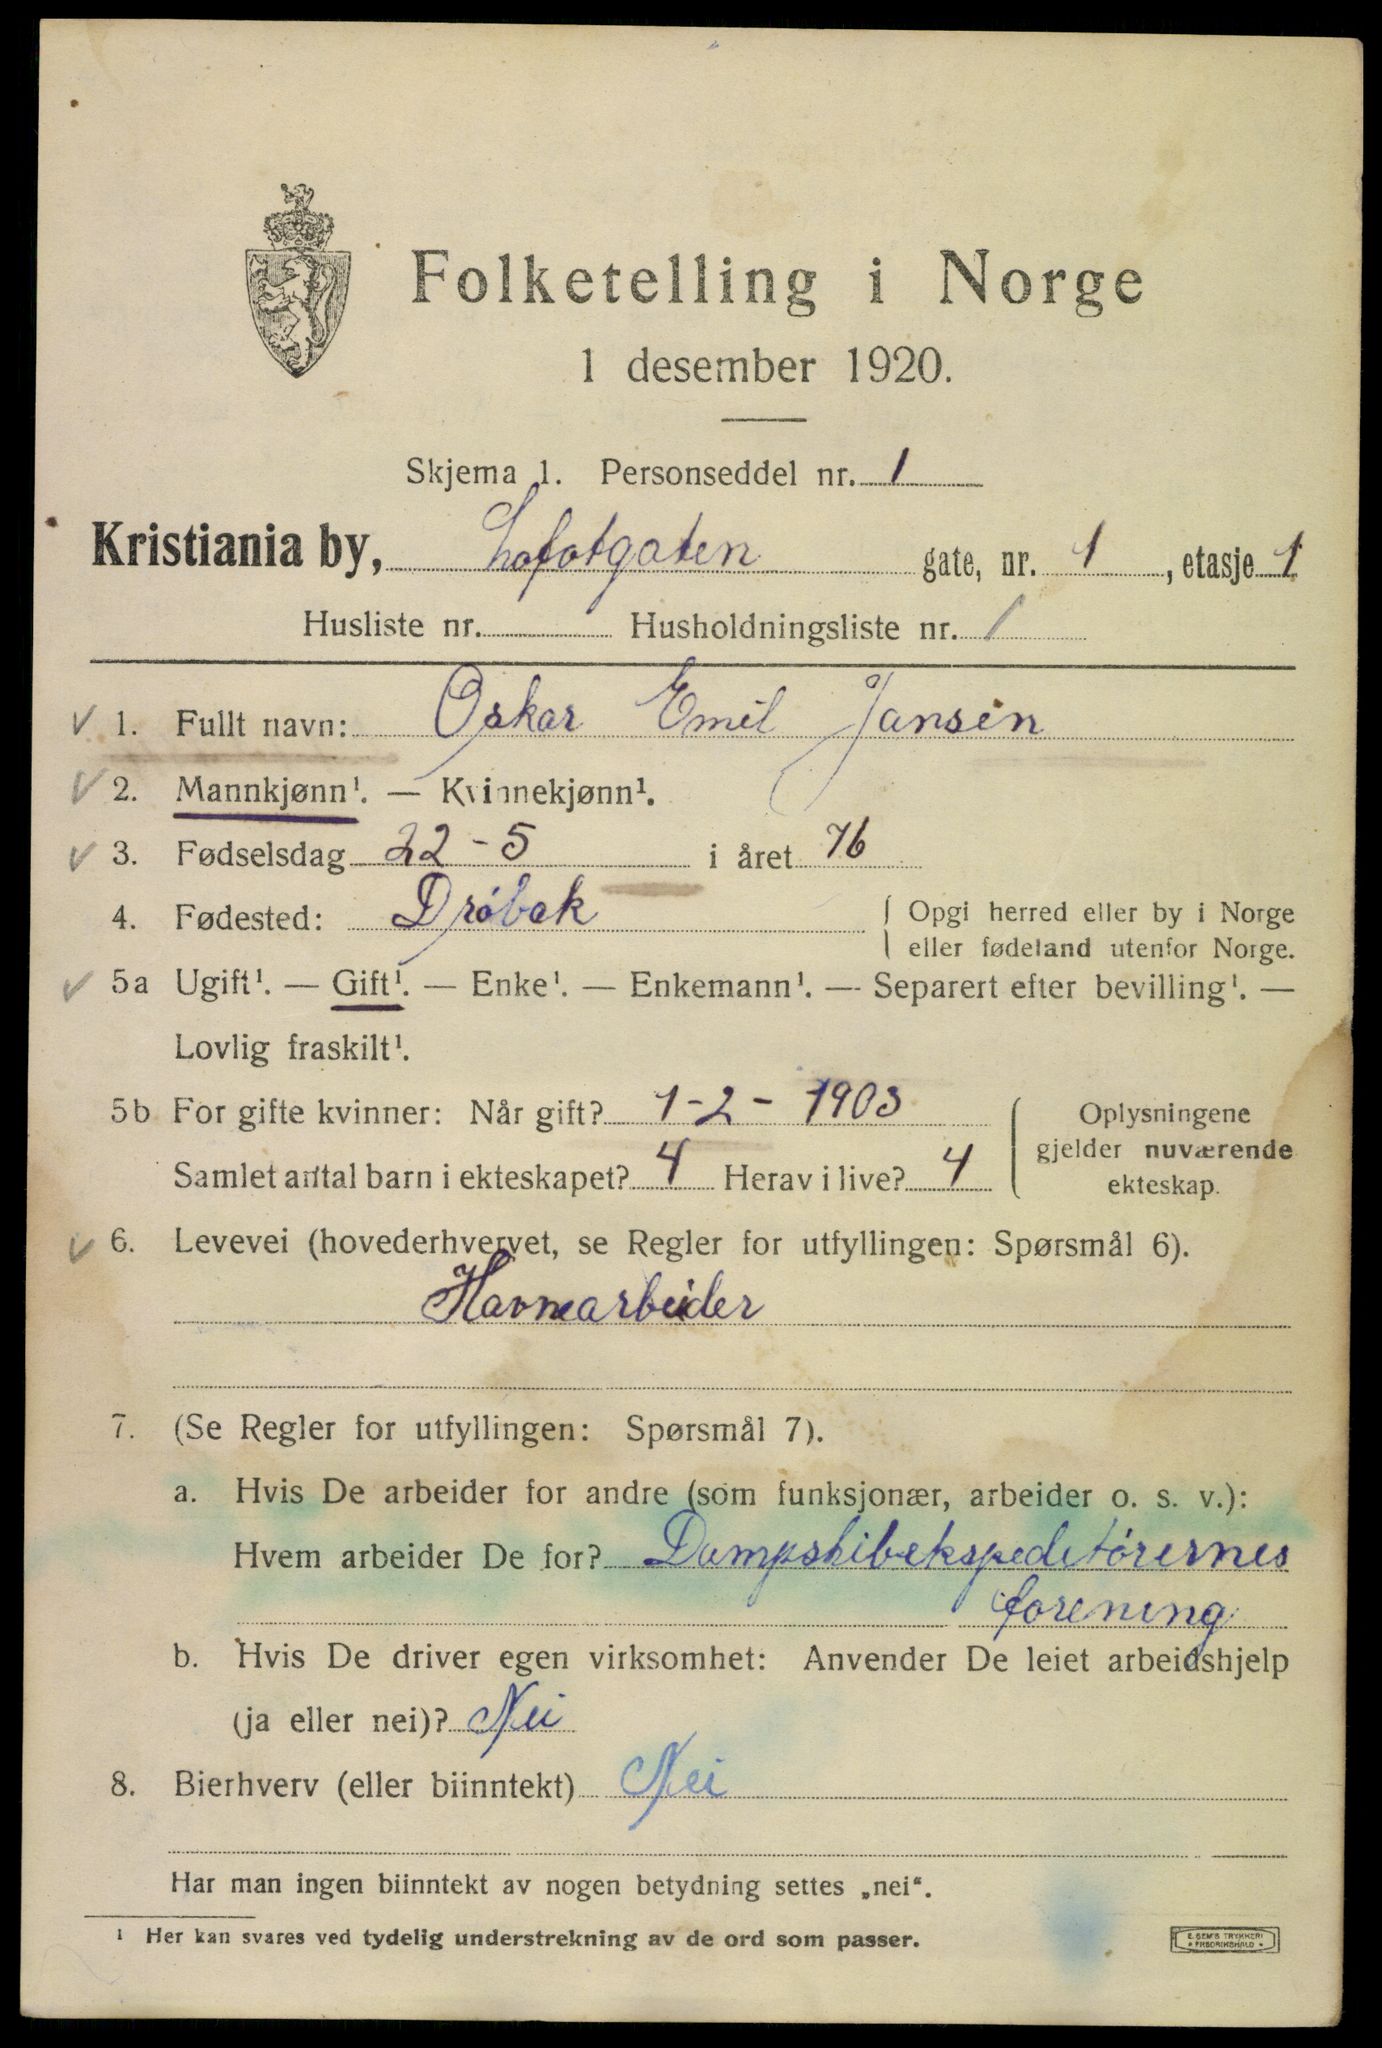 Folketelling i Norge
1 desember 1920.
Skjema 1. Personseddel nr. 1
Kristiania by, Lofotgaten gate, nr. 1, etasje 1
Husliste nr. Husholdningsliste nr. 1
1. Fullt navn: Oskar Emil Jansen
2. Mannkjønn¹. — Kvinnekjønn¹.
3. Fødselsdag 22-5 i året 76
4. Fødested: Dróbak { Opgi herred eller by i Norge
eller fødeland utenfor Norge.
5a Ugift¹. — Gift¹. — Enke¹. — Enkemann¹. — Separert efter bevilling¹. —
Lovlig fraskilt¹.
5b For gifte kvinner: Når gift? 1-2-1903
Samlet antal barn i ekteskapet? 4 Herav i live? 4
{ Oplysningene
gjelder nuværende
ekteskap.
6. Levevei (hovederhvervet, se Regler for utfyllingen: Spørsmål 6).
Havnearbeider
7. (Se Regler for utfyllingen: Spørsmål 7).
a. Hvis De arbeider for andre (som funksjonær, arbeider o. s. v.):
Hvem arbeider De for? Dampskibekspeditórernes
forening
b. Hvis De driver egen virksomhet: Anvender De leiet arbeidshjelp
(ja eller nei)? Nei
8. Bierhverv (eller biinntekt) Nei
Har man ingen biinntekt av nogen betydning settes „nei“.
¹ Her kan svares ved tydelig understrekning av de ord som passer.
E. SEM'S TRYKKERI
FREDRIKSHALD